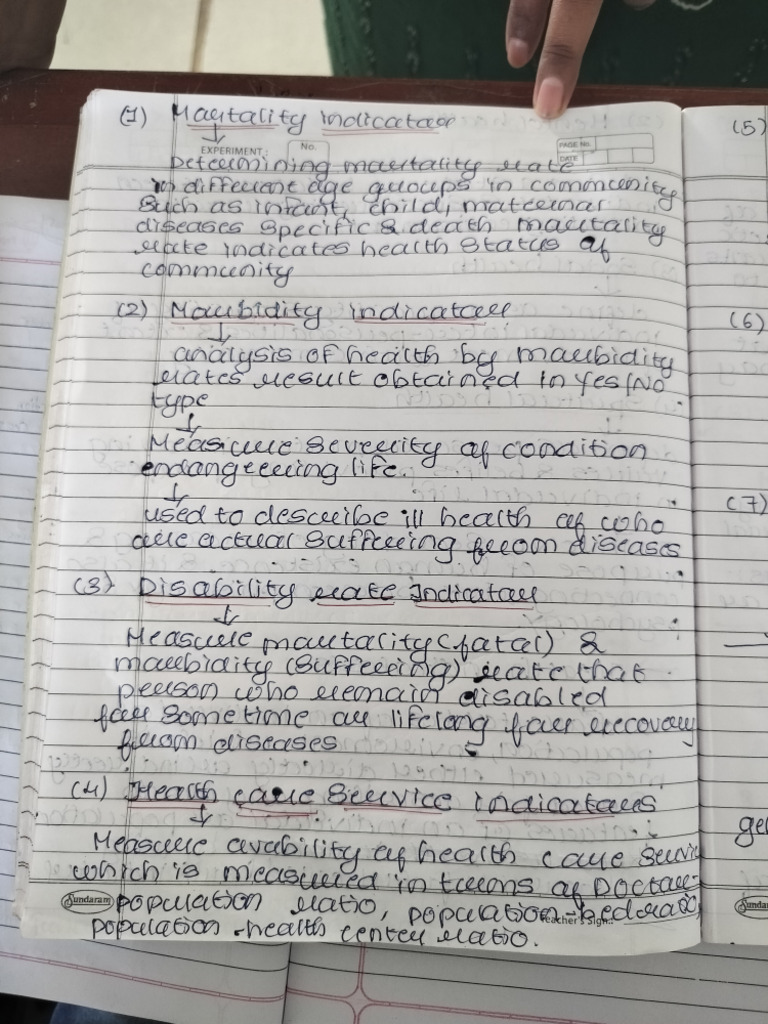 (1) Mortality indicator
↓
EXPERIMENT: No. PAGE No.
DATE
Determining mortality rate
in different age groups in community
such as infant, child, maternal
diseases specific & death mortality
rate indicates health status of
community
(2) Morbidity indicator
↓
analysis of health by morbidity
rates result obtained in Yes/No
type
↓
Measure severity of condition
endangering life.
↓
used to describe ill health of who
are actual suffering from diseases
(3) Disability rate Indicator
↓
Measure mortality (fatal) &
morbidity (suffering) rate that
person who remain disabled
for sometime or lifelong for recovery
from diseases
(4) Health care Service indicators
↓
Measure avability of health care servi
which is measured in terms of Doctor-
Sundaram population ratio, population-bed ratio,
Teacher's Sign.:
population-health center ratio.
(5)
(6)
(7)
ge